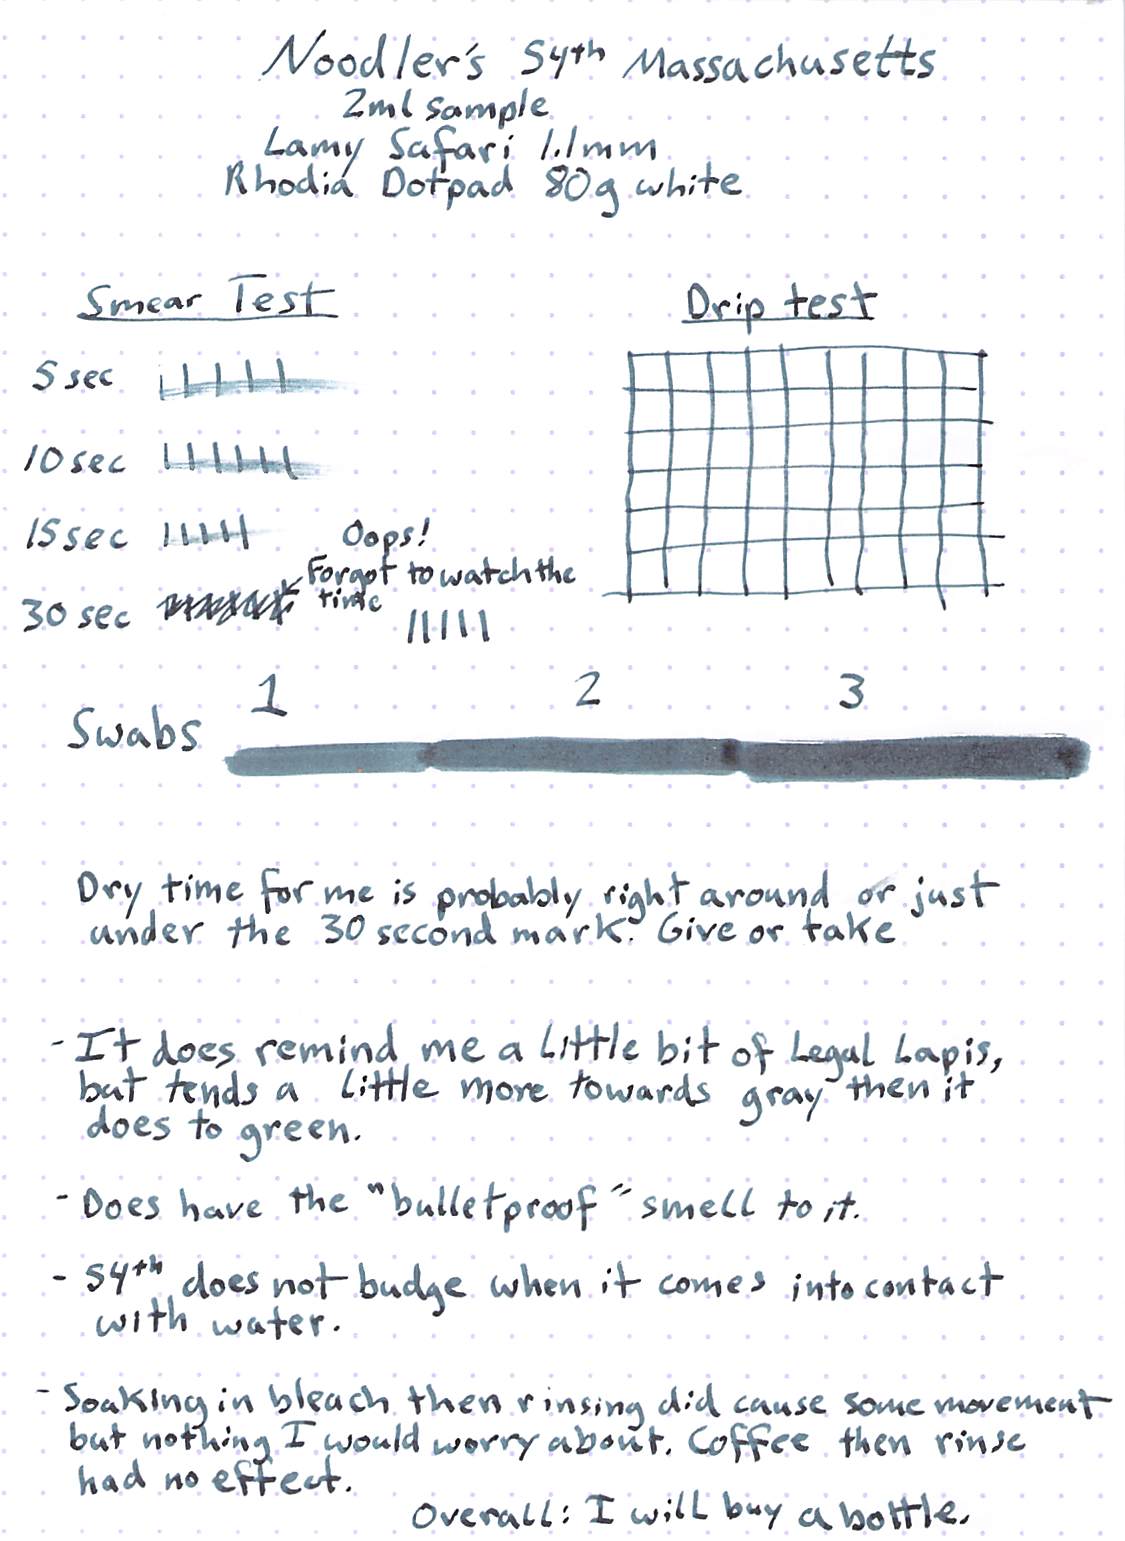 Noodler's 54th Massachusetts
2ml sample
Lamy Safari 1.1mm
Rhodia Dotpad 80g white
Smear Test
5 sec
10 sec
15 sec
Oops!
Forgot to watch the
time
30 sec
Drip test
Swabs
1 2 3
Dry time for me is probably right around or just
under the 30 second mark. Give or take
- It does remind me a little bit of Legal Lapis,
but tends a little more towards gray then it
does to green.
- Does have the "bulletproof" smell to it.
- 54th does not budge when it comes into contact
with water.
- Soaking in bleach then rinsing did cause some movement
but nothing I would worry about. Coffee then rinse
had no effect.
Overall: I will buy a bottle.